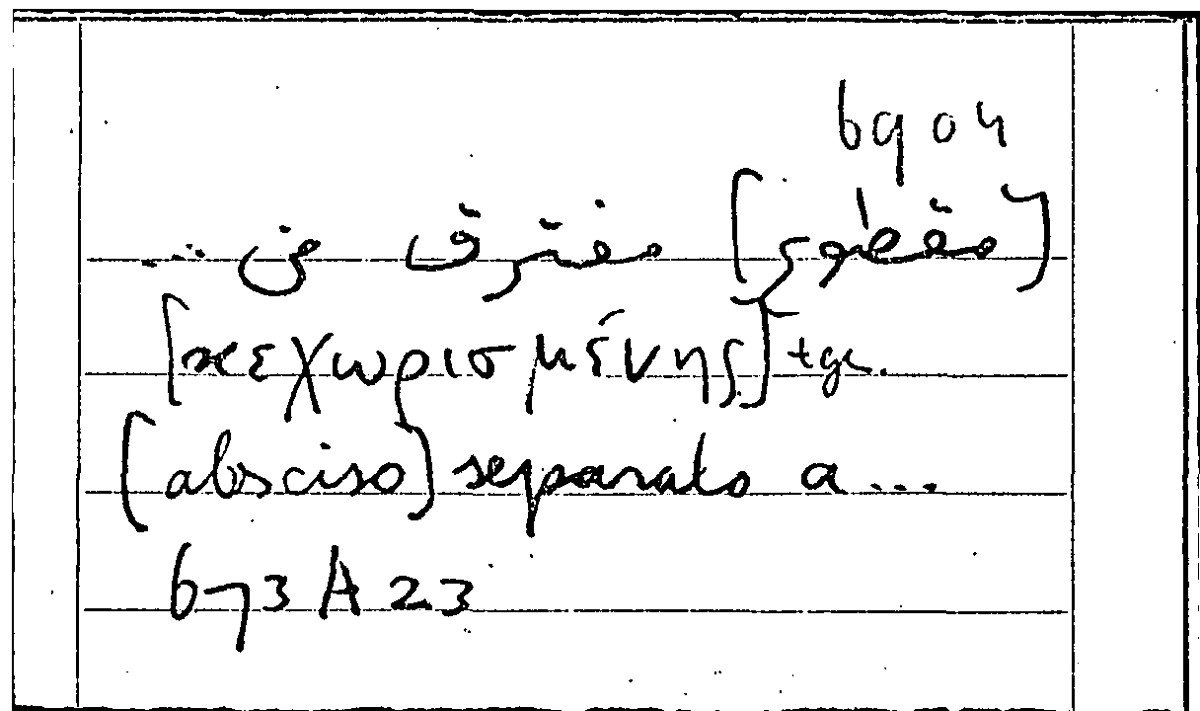 6904
[مقطوع] مفترق من ...
[κεχωρισμένης] tgc.
[absciso] separato a ...
673 A 23